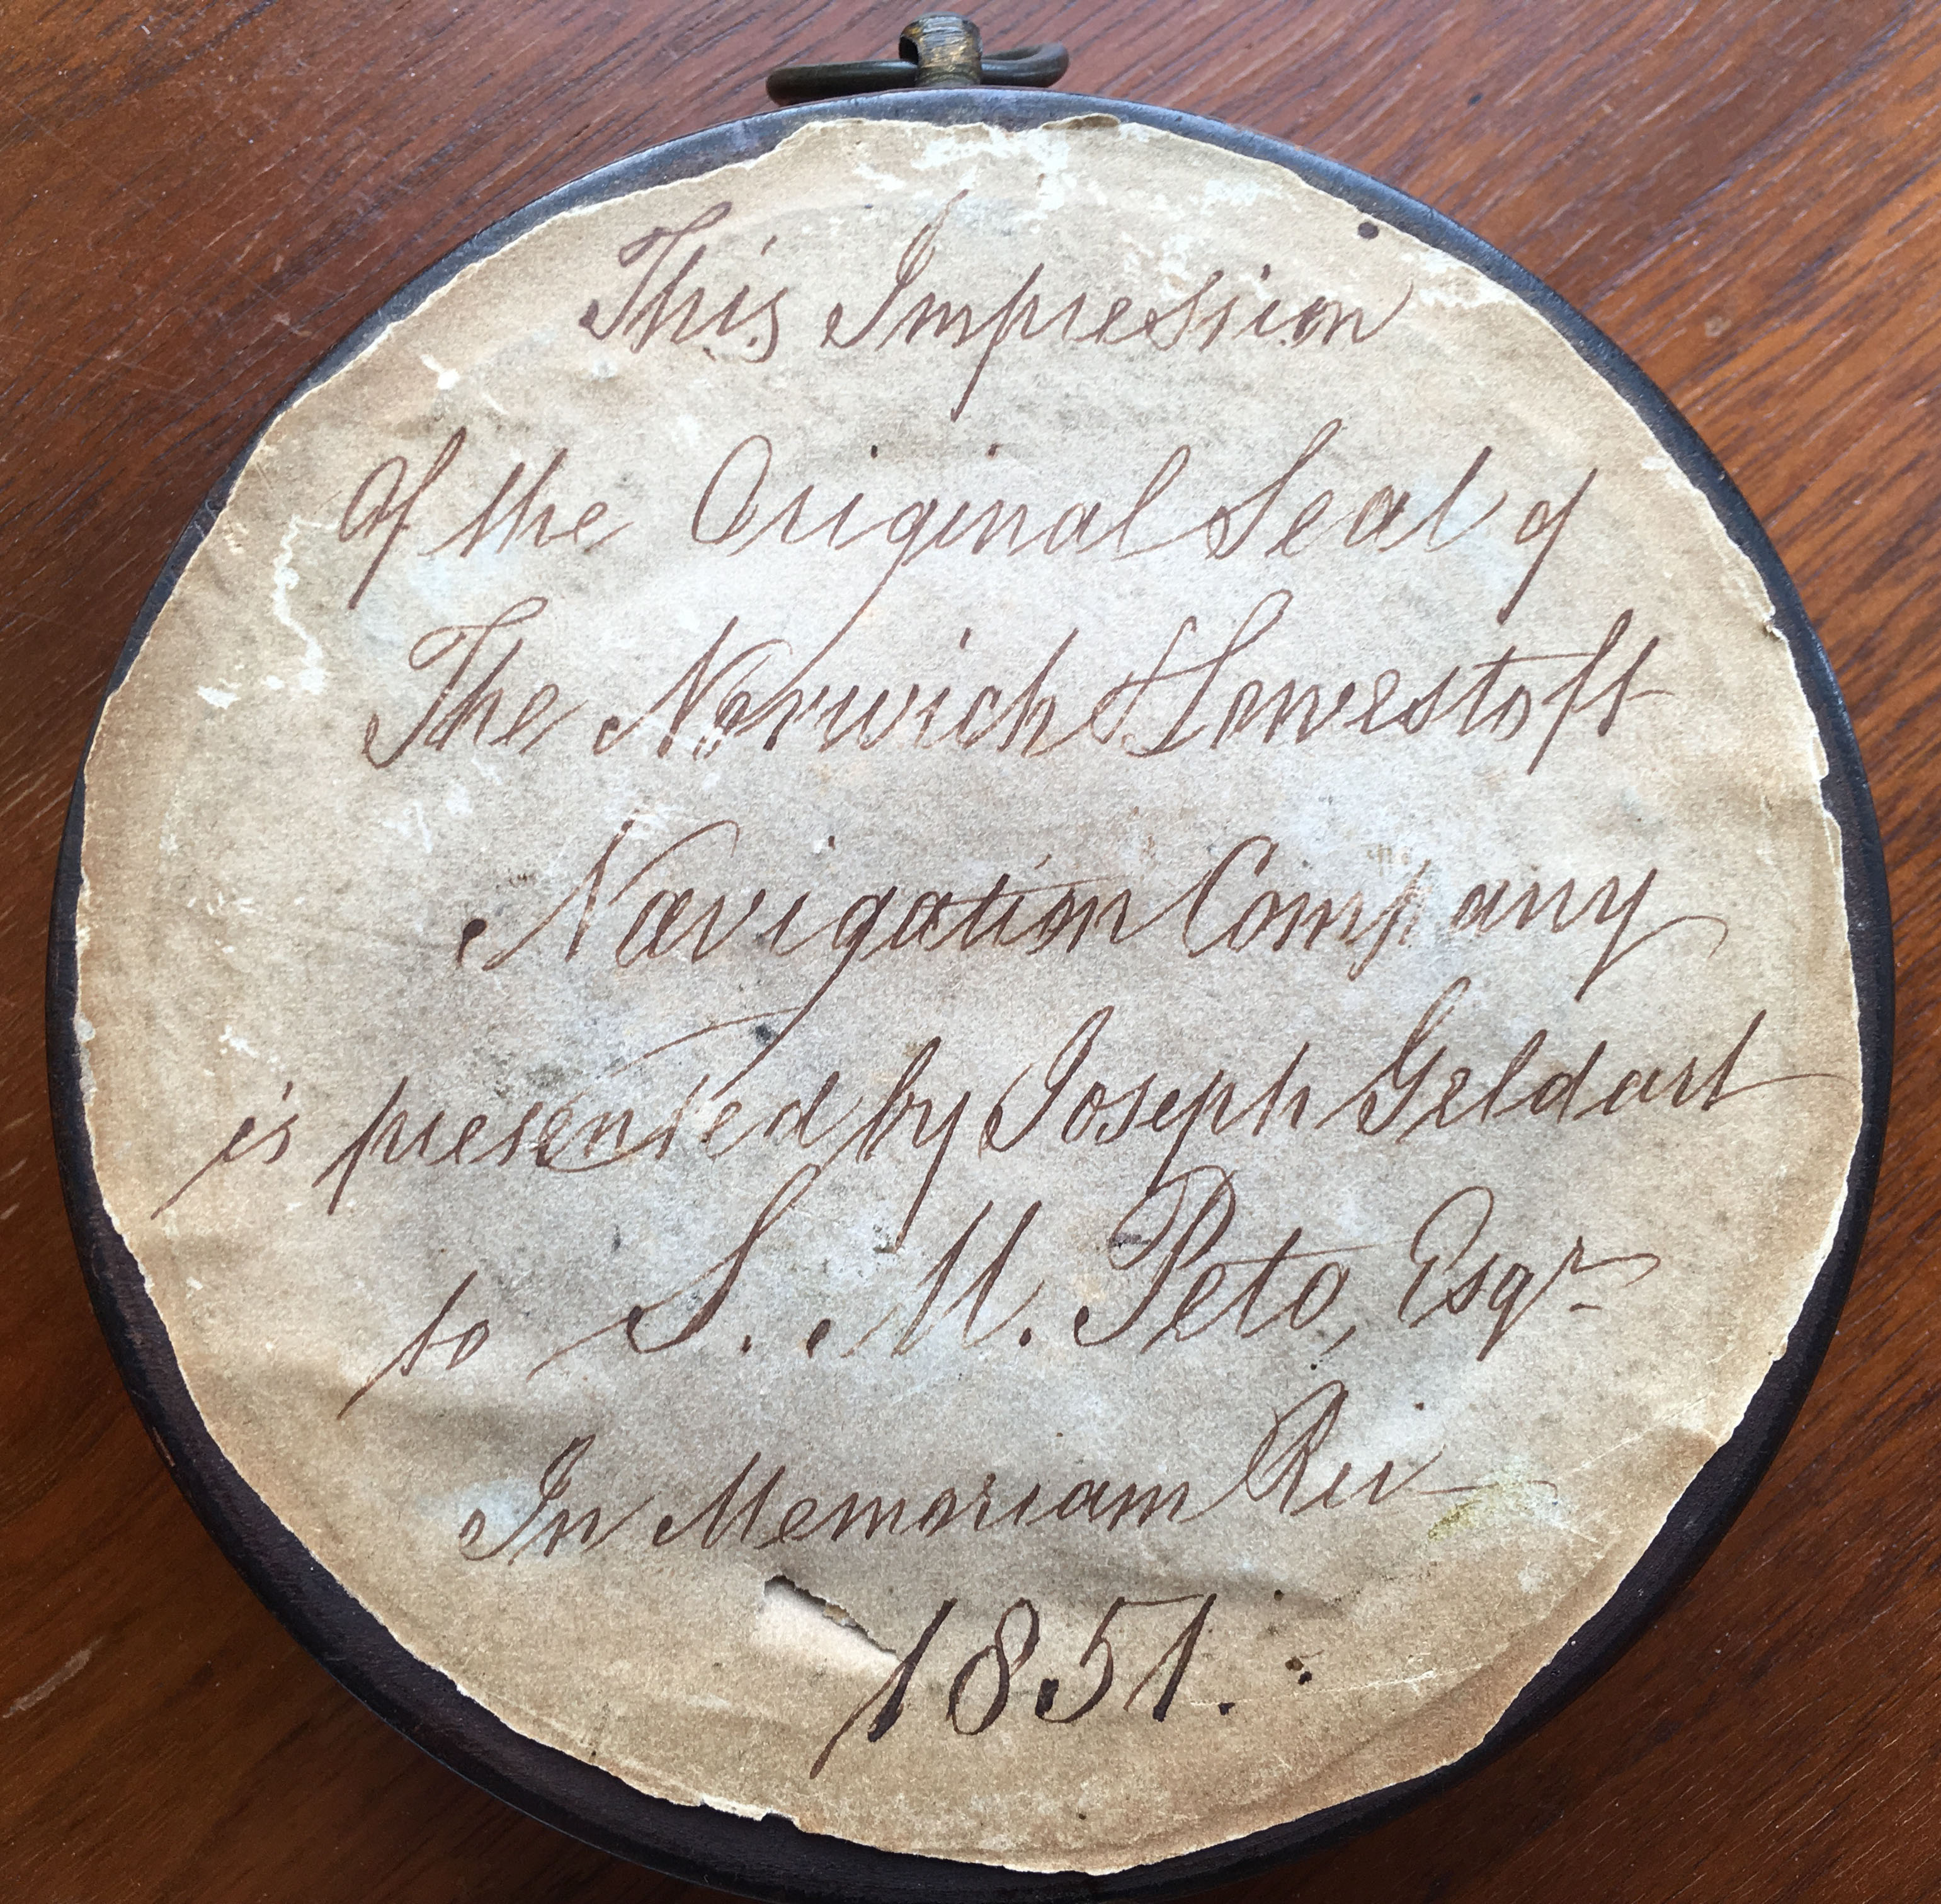 This Impression
Of the Original Seal of
The Norwich & Lowestoft
Navigation Company
is presented by Joseph Geldart
to S. M. Peto, Esqr
In Memoriam Rei
1851.